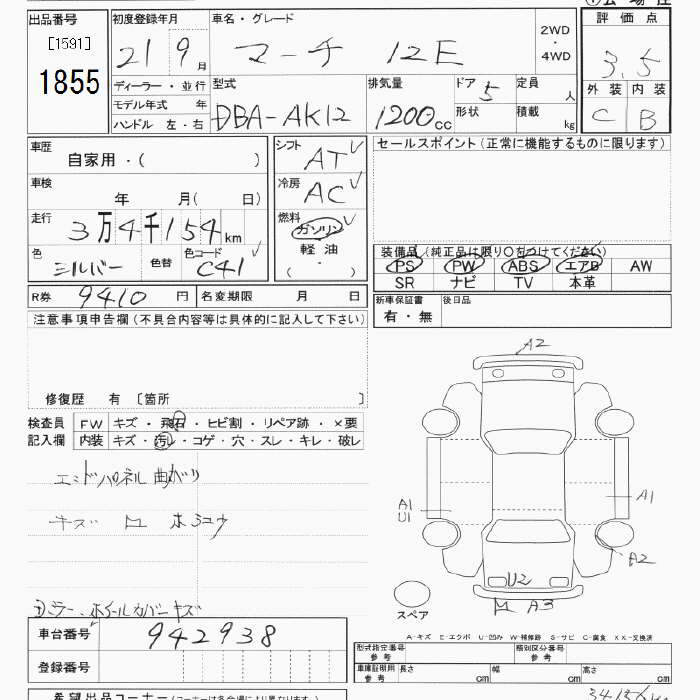 出品番号
[1591]
1855
初度登録年月
21 9月
車名・グレード
マーチ 12E
2WD
・
4WD
評価点
3.5
外装 内装
C B
ディーラー・並行
モデル年式 年
ハンドル 左・右
型式
DBA-AK12
排気量
1200cc
ドア 5
形状
定員 人
積載 kg
車歴
自家用・( )
車検
年 月( 日)
走行
3万4千154km
色
シルバー
色替
色コード
C41
シフト
AT
冷房
AC
燃料
ガソリン
軽油
( ・ )
R券 9410円 名変期限 月 日
セールスポイント(正常に機能するものに限ります)
装備品(純正品は限り○をつけてください)
PS PW ABS エアB AW
SR ナビ TV 本革
新車保証書
有・無
後日品
注意事項申告欄(不具合内容等は具体的に記入して下さい)
修復歴 有 [箇所 ]
検査員
記入欄
FW キズ・飛石・ヒビ割・リペア跡・×要
内装 キズ・汚レ・コゲ・穴・スレ・キレ・破レ
エンドパネル曲がり
キズ
ホイールカバーキズ
A2
A1
U1
A1
A2
U2
A3
スペア
A-キズ E-エクボ U-凹み W-補修跡 S-サビ C-腐食 XX-交換済
車台番号 942938
登録番号
型式指定番号
参考
類別区分番号
参考
車庫証明用
参考
長さ cm
幅 cm
高さ cm
希望出品コーナー